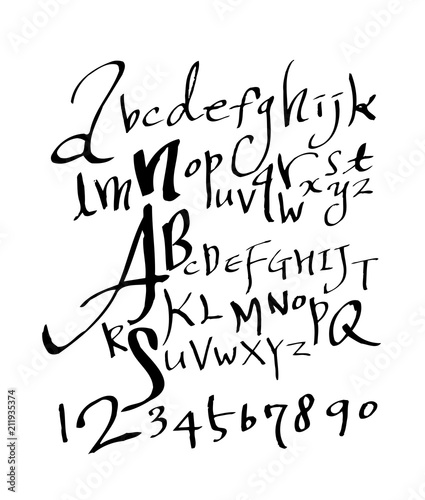 abcdefghijk
lmnopqrst
uvwxyz
ABCDEFGHIJT
KLMNOPQ
RSUVWXYZ
1234567890
Adobe Stock | #211935374